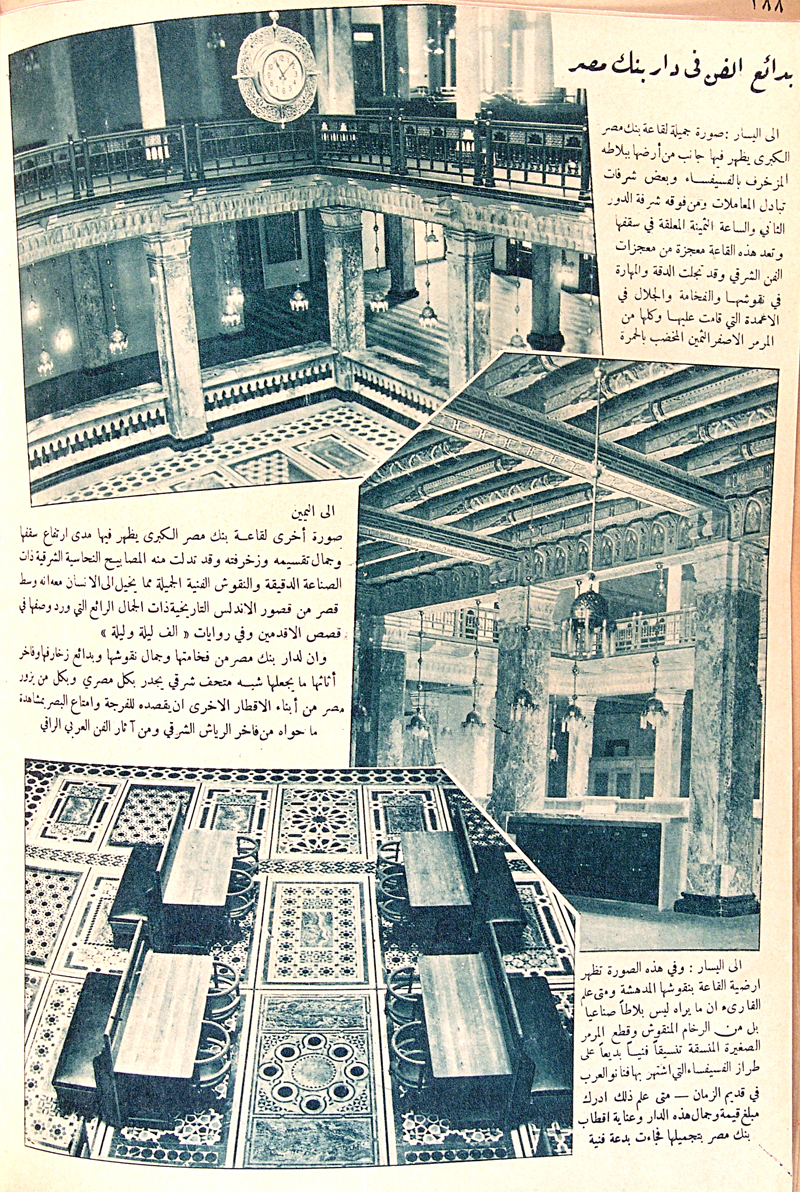 ٢٨٨
بدائع الفن فى دار بنك مصر
الى اليسار : صورة جميلة لقاعة بنك مصر
الكبرى يظهر فيها جانب من أرضها ببلاطه
المزخرف بالفسيفساء وبعض شرفات
تبادل المعاملات ومن فوقه شرفة الدور
الثاني والساعة الثمينة المعلقة في سقفها
وتعد هذه القاعة معجزة من معجزات
الفن الشرقي وقد تجلت الدقة والمهارة
في نقوشها والفخامة والجلال في
الاعمدة التي قامت عليها وكلها من
المرمر الاصفر الثمين المخضب بالحمرة
الى اليمين
صورة أخرى لقاعة بنك مصر الكبرى يظهر فيها مدى ارتفاع سقفها
وجمال تقسيمه وزخرفته وقد تدلت منه المصابيح النحاسية الشرقية ذات
الصناعة الدقيقة والنقوش الفنية الجميلة مما يخيل الى الانسان معه انه وسط
قصر من قصور الاندلس التاريخية ذات الجمال الرائع التي ورد وصفها في
قصص الاقدمين وفي روايات « الف ليلة وليلة »
وان لدار بنك مصر من فخامتها وجمال نقوشها وبدائع زخارفها وفاخر
أثاثها ما يجعلها شبه متحف شرقي يجدر بكل مصري وبكل من يزور
مصر من أبناء الاقطار الاخرى ان يقصده للفرجة وامتاع البصر بمشاهدة
ما حواه من فاخر الرياش الشرقي ومن آثار الفن العربي الراقي
الى اليسار : وفي هذه الصورة تظهر
ارضية القاعة بنقوشها المدهشة ومتى علم
القارىء ان ما يراه ليس بلاطاً صناعياً
بل من الرخام المنقوش وقطع المرمر
الصغيرة المنسقة تنسيقاً فنياً بديعاً على
طراز الفسيفساء التي اشتهر بها فنانو العرب
في قديم الزمان — متى علم ذلك ادرك
مبلغ قيمة وجمال هذه الدار وعناية اقطاب
بنك مصر بتجميلها فجاءت بدعة فنية